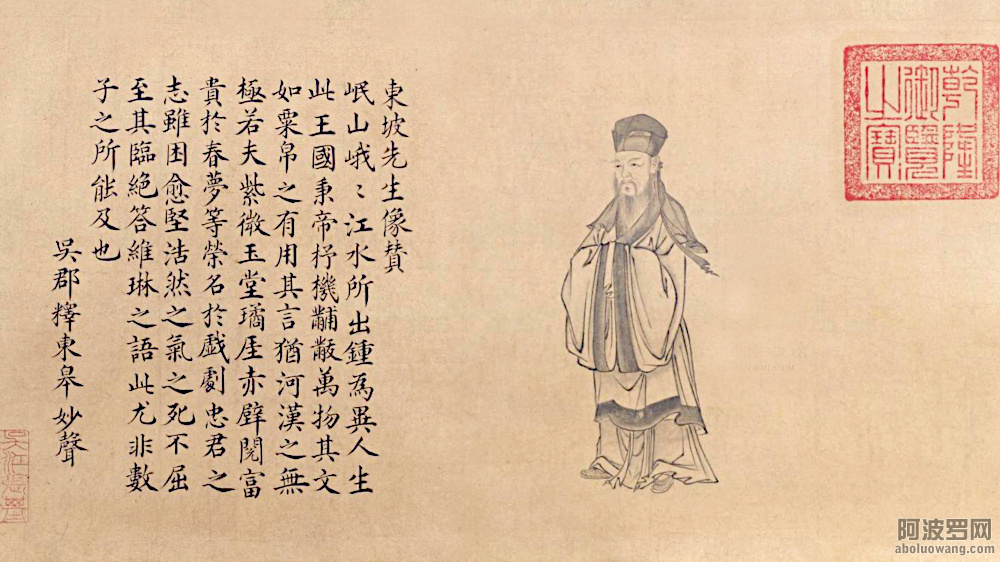 乾隆
御覽
之寶
東坡先生像贊
岷山峨〻江水所出鍾為異人生
此王國秉帝杼機黼黻萬物其文
如粟帛之有用其言猶河漢之無
極若夫紫微玉堂璚厓赤壁閱富
貴於春夢等榮名於戲劇忠君之
志雖困愈堅浩然之氣之死不屈
至其臨絕答維琳之語此尤非數
子之所能及也
吳郡釋東皋妙聲
阿波罗网
aboluowang.com